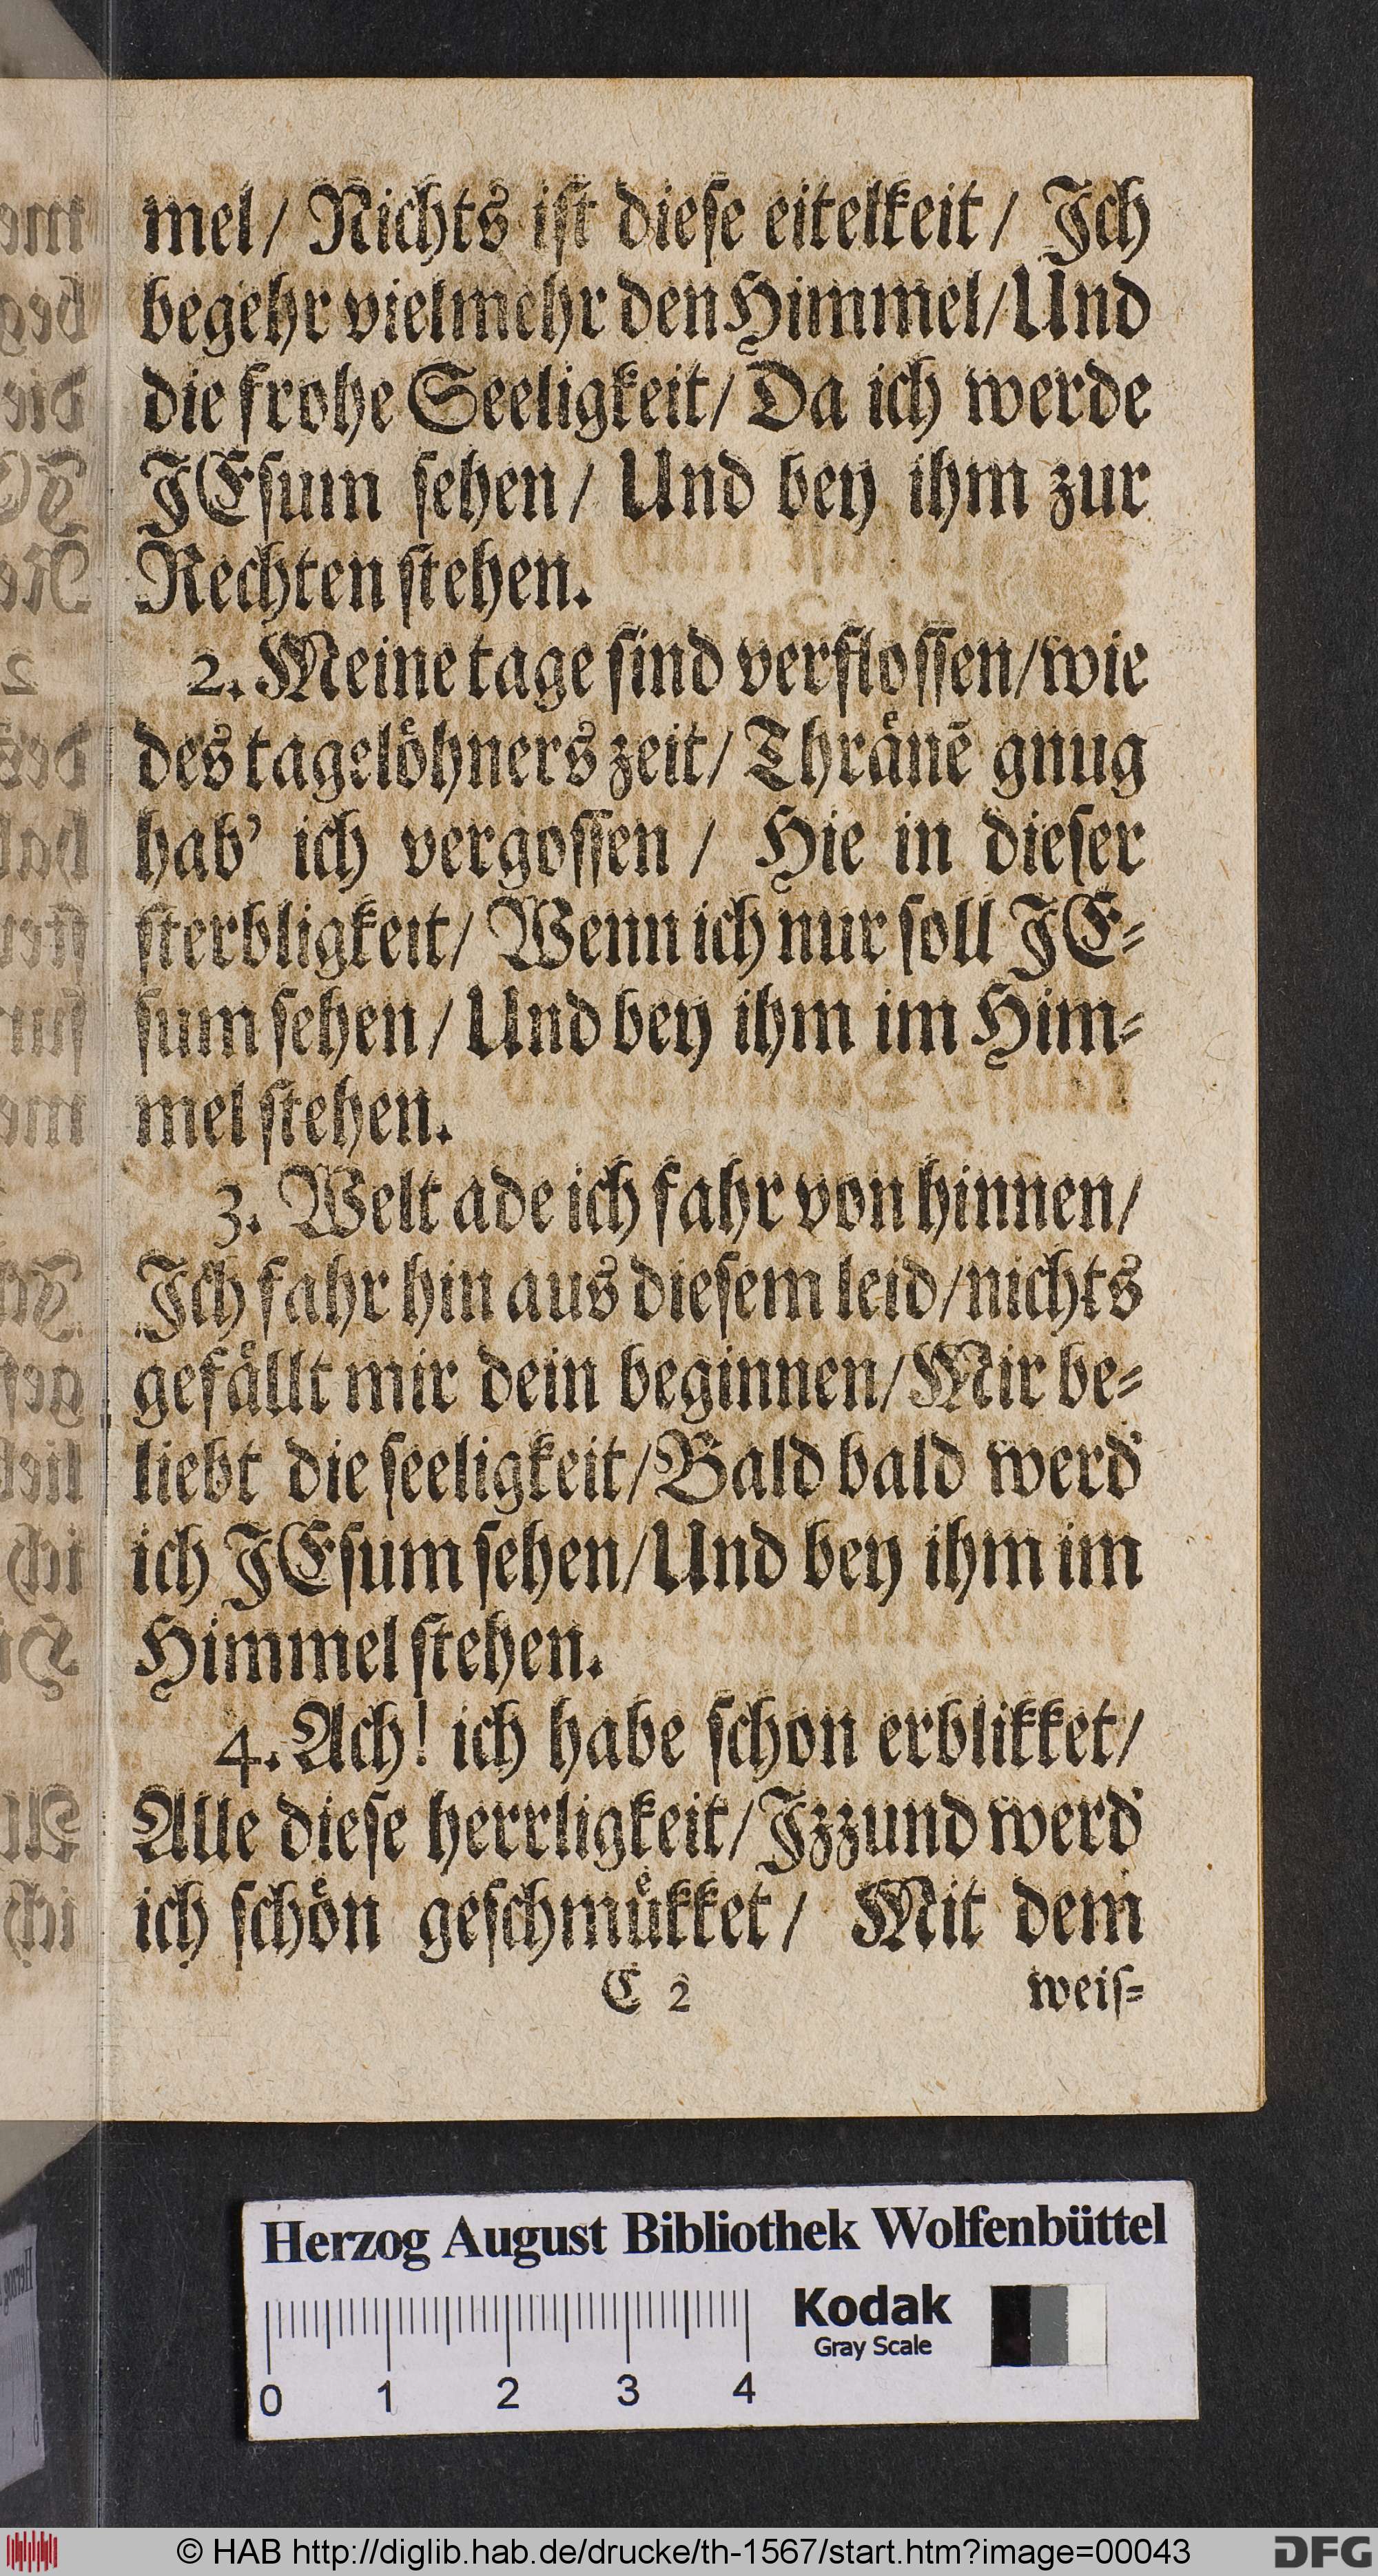 mel/ Nichts iſt dieſe eitelkeit/ Ich
begehr vielmehr den Himmel/ Und
die frohe Seeligkeit/ Da ich werde
JEſum ſehen/ Und bey ihm zur
Rechten ſtehen.
2. Meine tage ſind verfloſſen/ wie
des tageloͤhners zeit/ Thraͤnē gnug
hab' ich vergoſſen / Hie in dieſer
ſterbligkeit/ Wenn ich nur ſoll JE-
ſum ſehen/ Und bey ihm im Him-
mel ſtehen.
3. Welt ade ich fahr von hinnen/
Ich fahr hin aus dieſem leid/ nichts
gefaͤllt mir dein beginnen/ Mir be-
liebt die ſeeligkeit/ Bald bald werd'
ich JEſum ſehen/ Und bey ihm im
Himmel ſtehen.
4. Ach! ich habe ſchon erblikket/
Alle dieſe herrligkeit/ Izzund werd'
ich ſchoͤn geſchmuͤkket/ Mit dem
C 2 weiſ-
Herzog August Bibliothek Wolfenbüttel
Kodak
Gray Scale
0 1 2 3 4
© HAB http://diglib.hab.de/drucke/th-1567/start.htm?image=00043
DFG